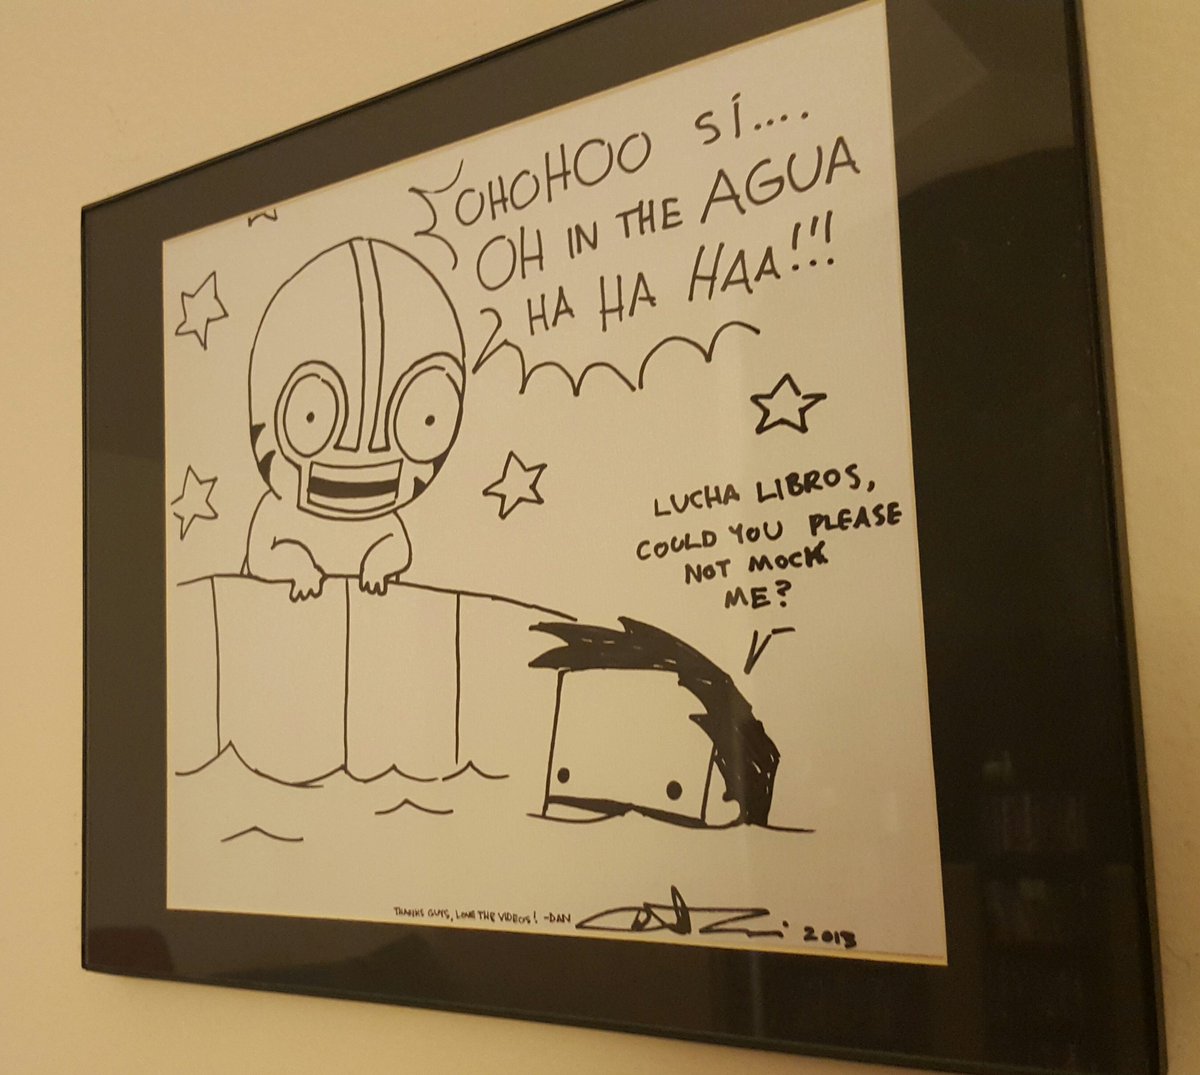 OHOHOO SÍ....
OH IN THE AGUA
HA HA HAA!!!
LUCHA LIBROS,
COULD YOU PLEASE
NOT MOCK
ME?
THANKS GUYS, LOVE THE VIDEOS! -DAN
2013